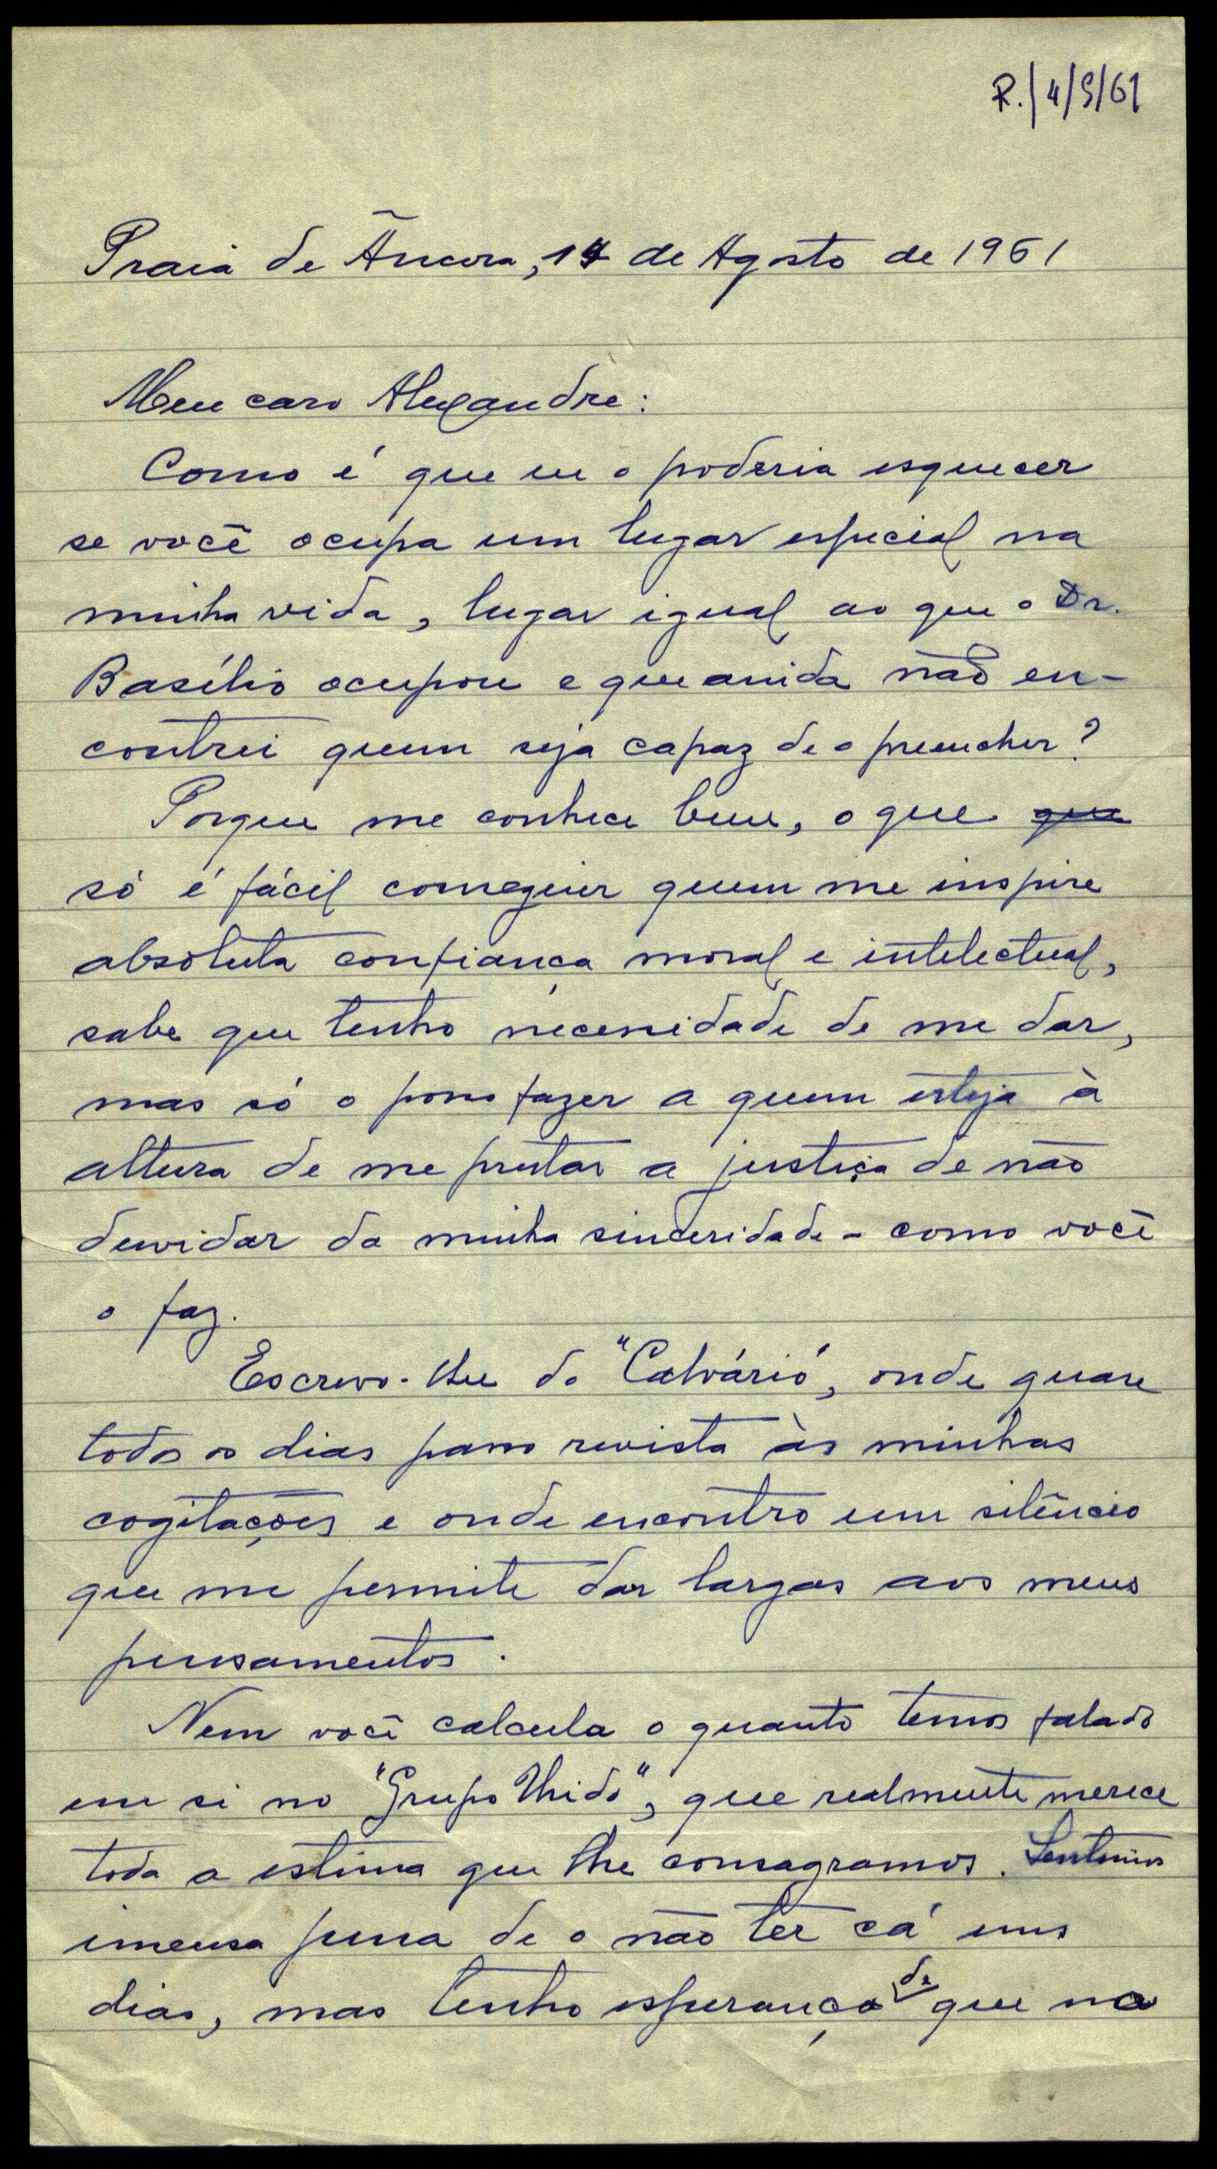 R./4/9/61
Praia de Âncora, 17 de Agosto de 1961
Meu caro Alexandre:
Como é que eu o poderia esquecer
se você ocupa um lugar especial na
minha vida, lugar igual ao que o Dr.
Basílio ocupou e que ainda não en-
contrei quem seja capaz de o preencher?
Porque me conhece bem, o que ~~que~~
só é fácil conseguir quem me inspire
absoluta confiança moral e intelectual,
sabe que tenho necessidade de me dar,
mas só o posso fazer a quem esteja à
altura de me prestar a justiça de não
duvidar da minha sinceridade - como você
o faz.
Escrevo-lhe do "Calvário", onde quase
todos os dias passo revista às minhas
cogitações e onde encontro um silêncio
que me permite dar largas aos meus
pensamentos.
Nem você calcula o quanto temos falado
em si no "Grupo Unido", que realmente merece
toda a estima que lhe consagramos. Sentimos
imensa pena de o não ter cá uns
dias, mas tenho esperança de que na